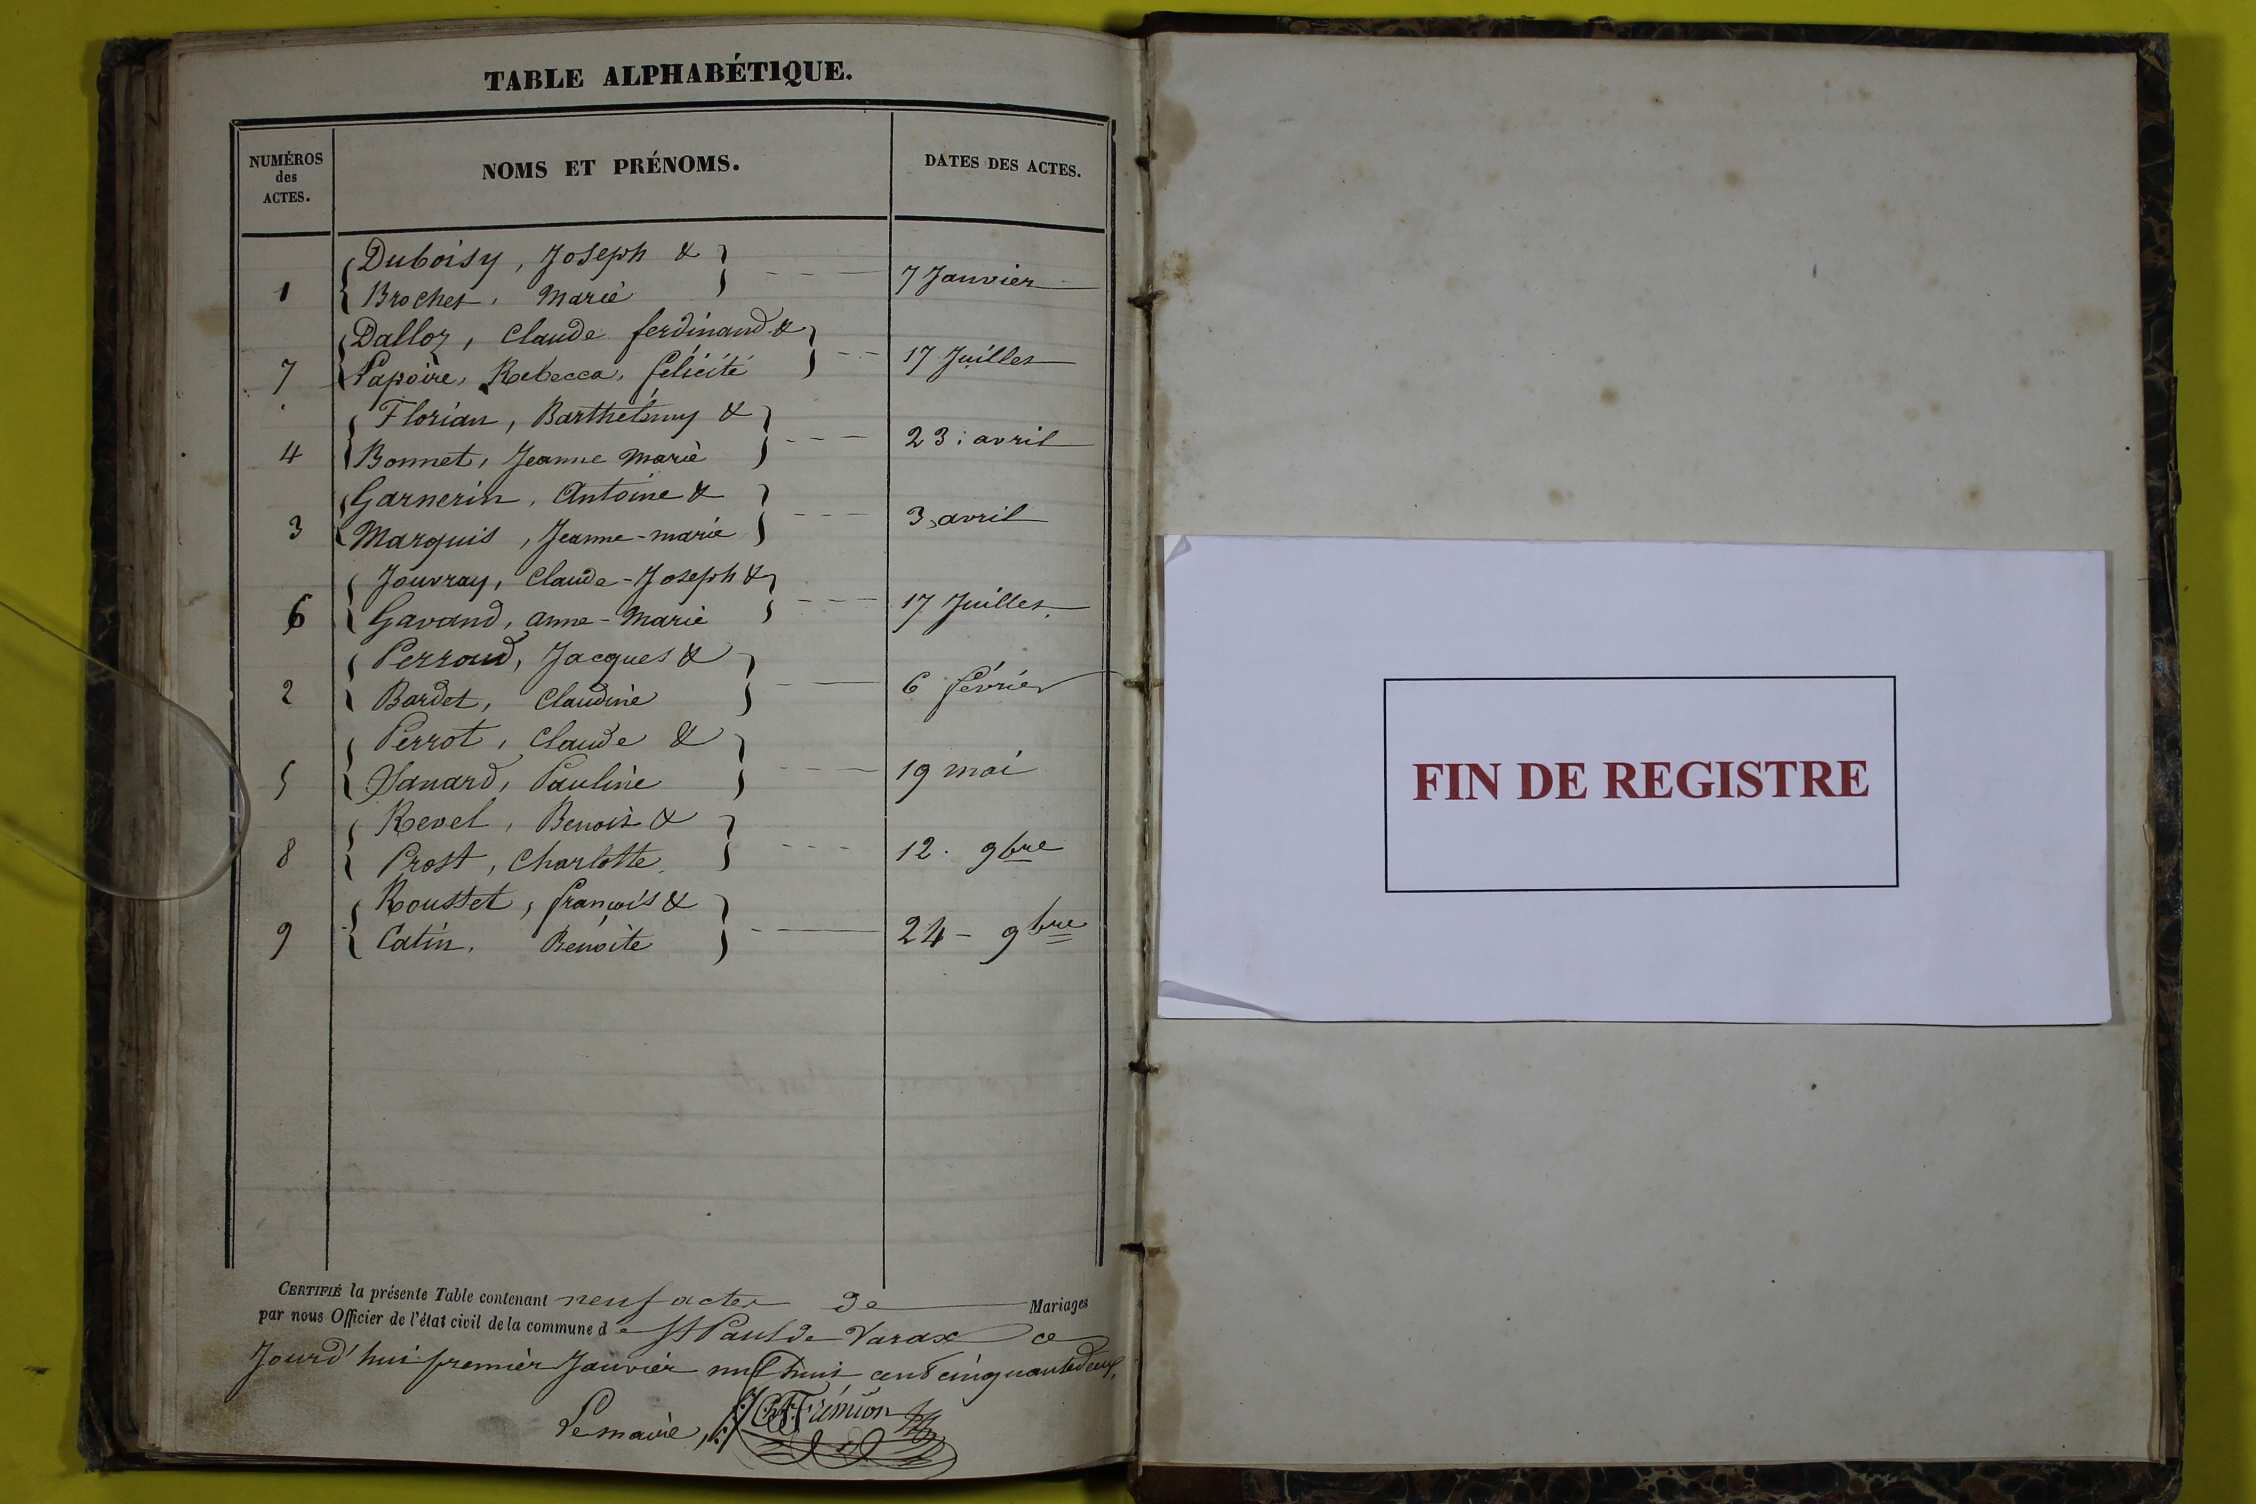 TABLE ALPHABÉTIQUE.
NUMÉROS des ACTES.
NOMS ET PRÉNOMS.
DATES DES ACTES.
1 Duboisy, Joseph & 7 Janvier
Brochet, Marie
7 Dalloz, Claude ferdinand & 17 Juillet
Lapoire, Rebecca, félicité
4 Florian, Barthelmy & 23 avril
Bonnet, Jeanne Marie
3 Garnerin, Antoine & 3 avril
Marquis, Jeanne-marie
6 Jouvray, Claude-Joseph & 17 Juillet
Gavand, anne-Marie
2 Perroud, Jacques & 6 février
Bardet, Claudine
5 Perrot, Claude & 19 mai
Pauline
8 Revel, Benoit & 12. 9bre
Prost, Charlotte
9 Rousset, françois & 24 - 9bre
Catin, Benoite
CERTIFIÉ la présente Table contenant neuf actes de Mariages
par nous Officier de l'état civil de la commune de St Paul de Varax ce
Jourd'hui premier Janvier mil huit cent cinquante deux,
Le maire,
FIN DE REGISTRE